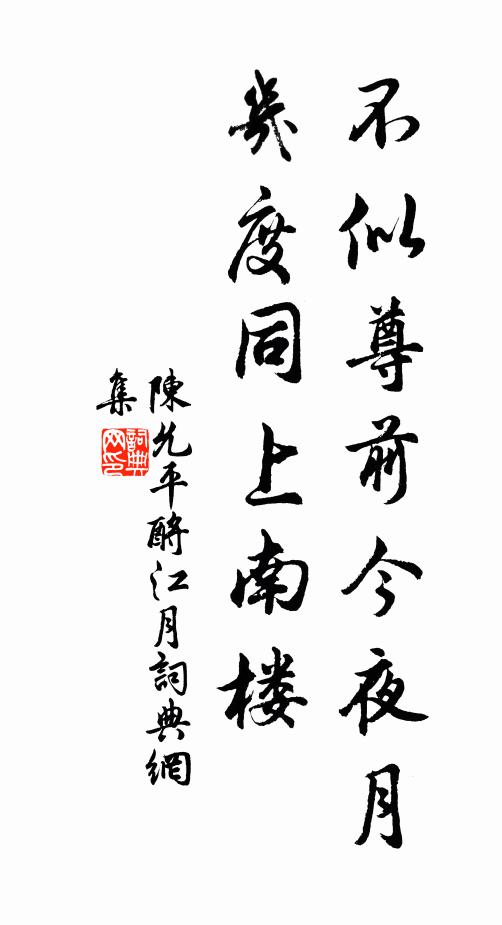 不似尊前今夜月
幾度同上南楼
陳允平酹江月詞典網
集
詞典网印